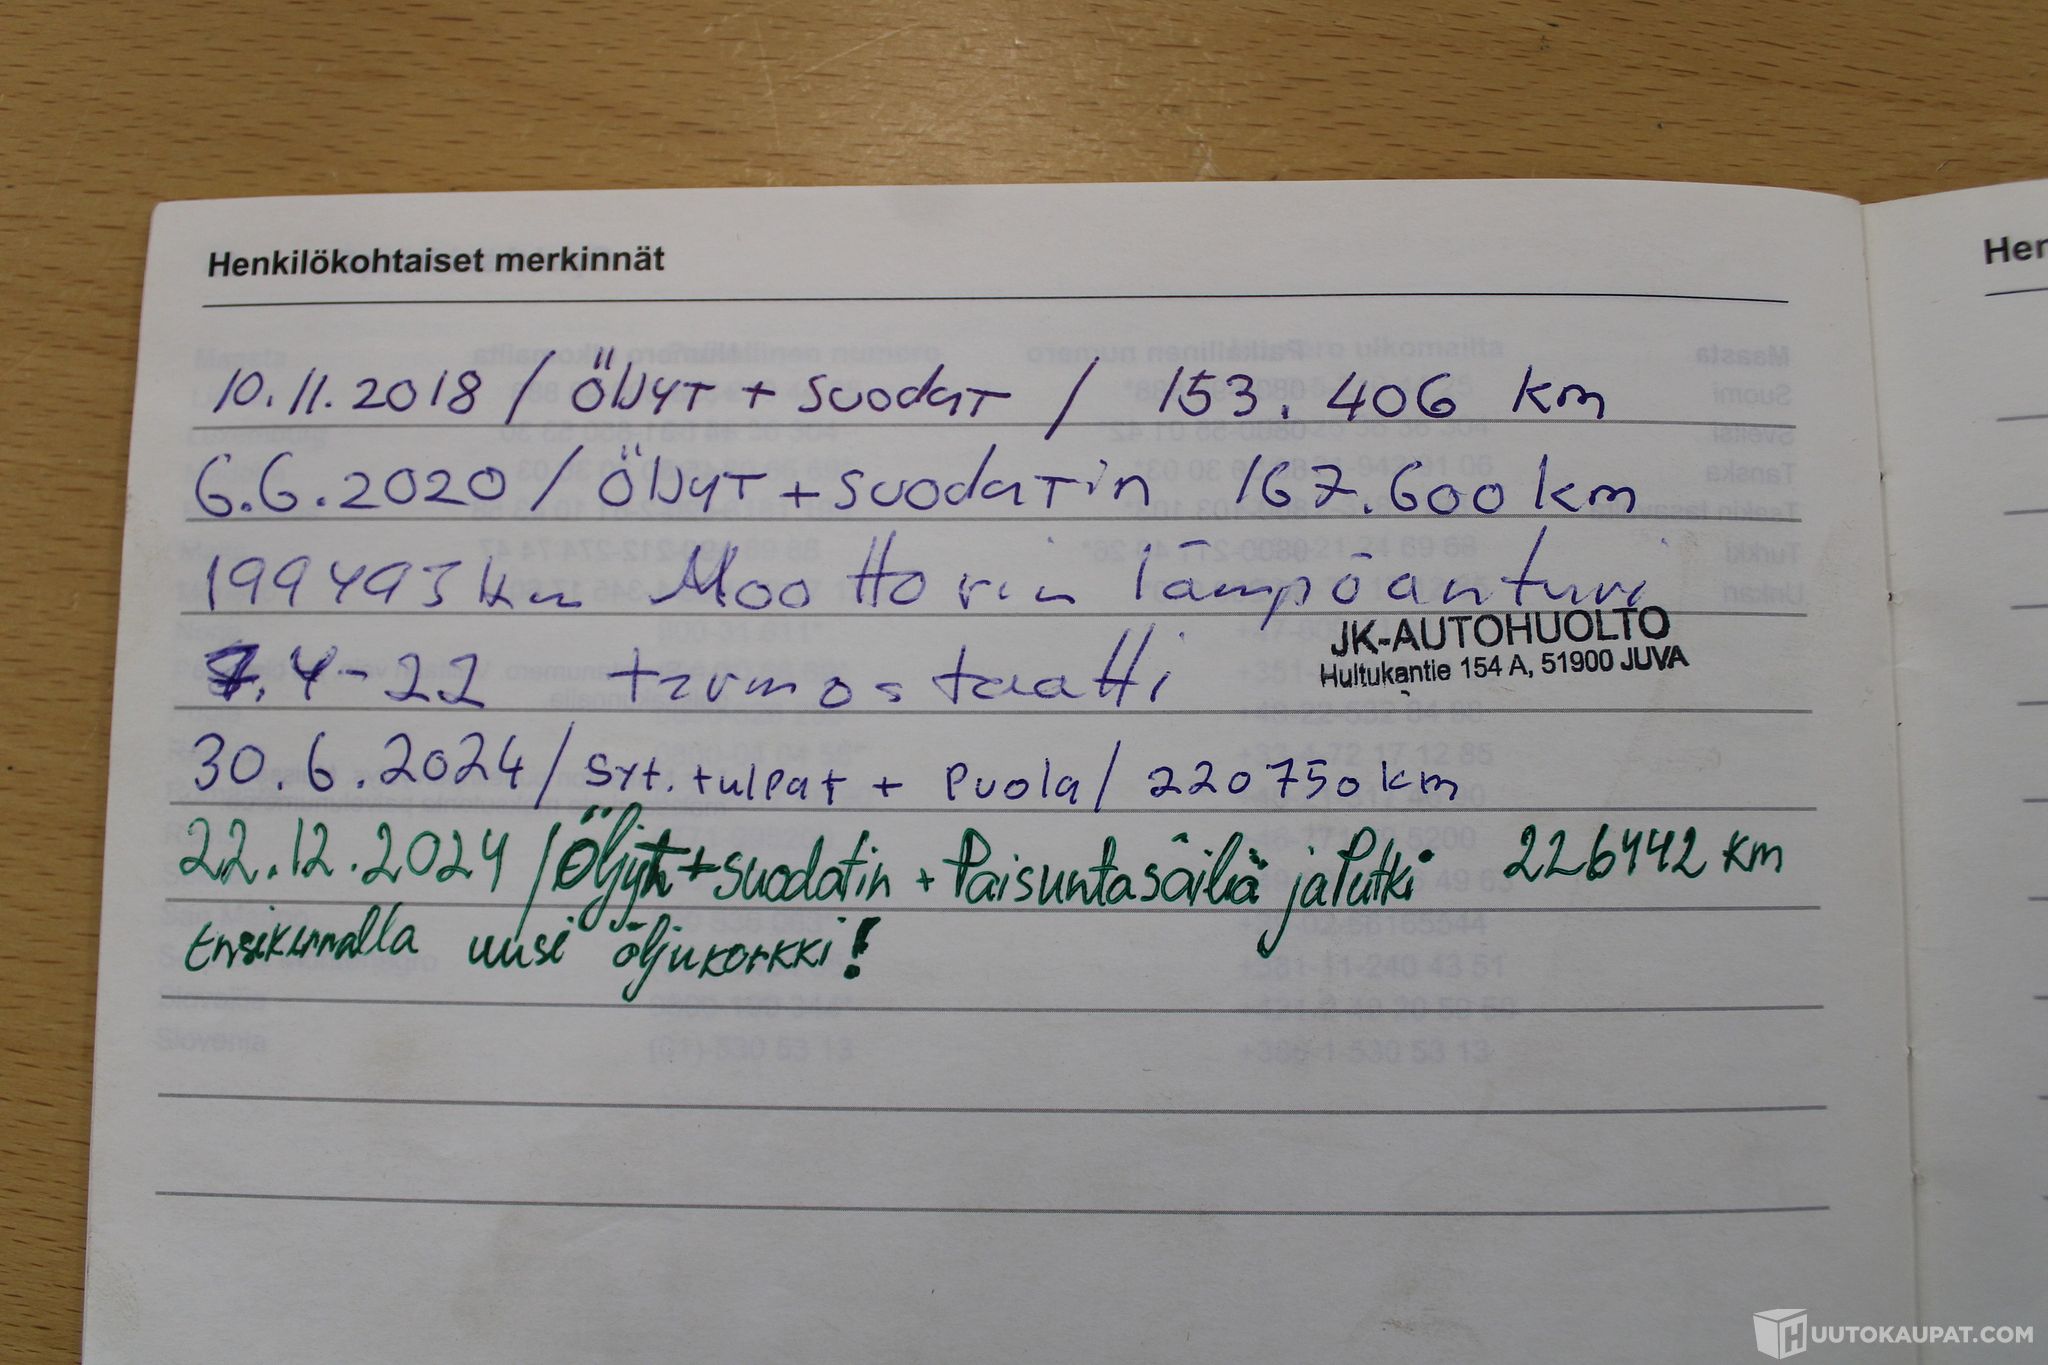 Henkilökohtaiset merkinnät
Her
10.11.2018 / Öljyt + suodat / 153.406 km
6.6.2020 / Öljyt + suodatin 167.600 km
199493 km Moottorin lämpöanturi
7.4-22 termostaatti
JK-AUTOHUOLTO
Huttukantie 154 A, 51900 JUVA
30.6.2024 / syt. tulpat + puola / 220750 km
22.12.2024 / Öljyt + suodatin + Paisuntasäiliö ja Putki 226442 km
Ensikerralla uusi öljykorkki!
HUUTOKAUPAT.COM